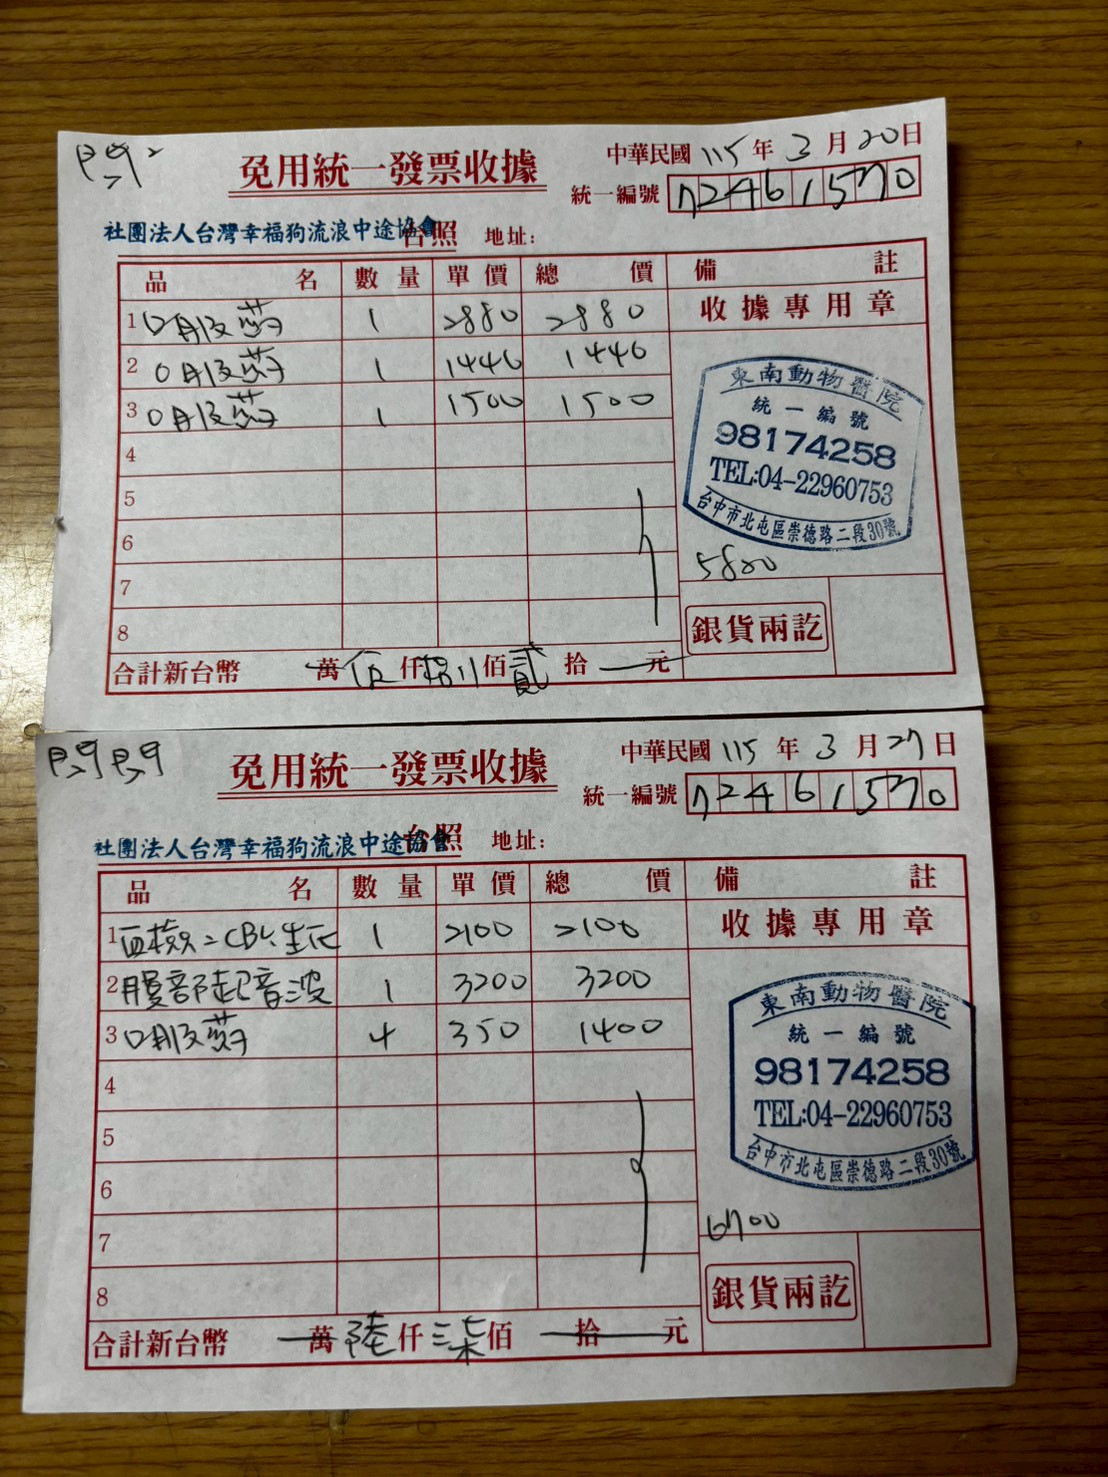 免用統一發票收據
中華民國 115 年 3 月 20 日
統一編號 72461570
社團法人台灣幸福狗流浪中途協會 台照 地址:
品名 數量 單價 總價 備註
1 口服葯 1 2880 2880 收據專用章
2 口服葯 1 1440 1440
3 口服葯 1 1500 1500
4
5
6
7
8
東南動物醫院
統一編號
98174258
TEL:04-22960753
台中市北屯區崇德路二段30號
5820
銀貨兩訖
合計新台幣 萬 伍 仟 捌 佰 貳 拾 元
免用統一發票收據
中華民國 115 年 3 月 27 日
統一編號 72461570
社團法人台灣幸福狗流浪中途協會 台照 地址:
品名 數量 單價 總價 備註
1 血檢:CBC、生化 1 2100 2100 收據專用章
2 腹部超音波 1 3200 3200
3 口服葯 4 350 1400
4
5
6
7
8
東南動物醫院
統一編號
98174258
TEL:04-22960753
台中市北屯區崇德路二段30號
6700
銀貨兩訖
合計新台幣 萬 陸 仟 柒 佰 拾 元